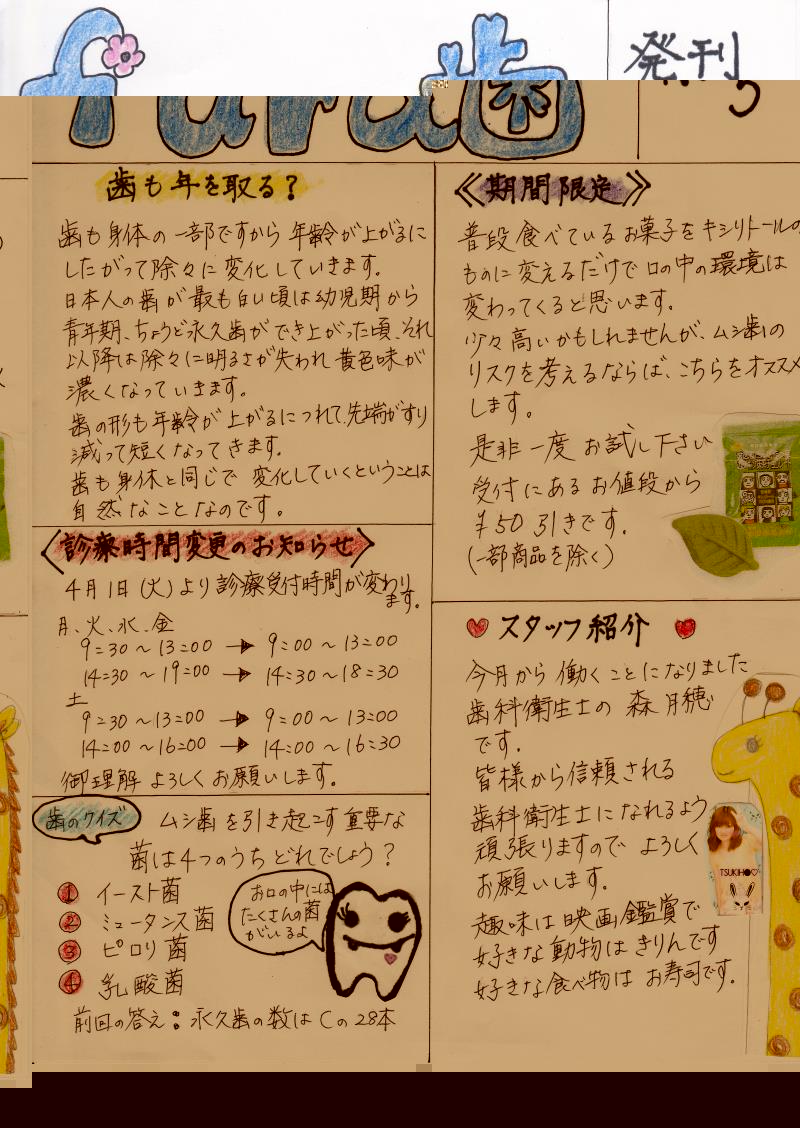 fura歯
発刊
歯も年を取る?
歯も身体の一部ですから 年齢が上がるに
したがって除々に変化していきます。
日本人の歯が最も白い頃は幼児期から
青年期、ちょうど永久歯ができ上がった頃、それ
以降は除々に明るさが失われ黄色味が
濃くなっていきます。
歯の形も年齢が上がるにつれて、先端がすり
減って短くなってきます。
歯も身体と同じで 変化していくということは
自然なことなのです。
診療時間変更のお知らせ
4月1日(火)より診療受付時間が変わり
ます。
月、火、水、金
9:30 ~ 13:00 → 9:00 ~ 13:00
14:30 ~ 19:00 → 14:30 ~ 18:30
土
9:30 ~ 13:00 → 9:00 ~ 13:00
14:00 ~ 16:00 → 14:00 ~ 16:30
御理解 よろしくお願いします。
歯のクイズ
ムシ歯を引き起こす重要な
菌は4つのうちどれでしょう?
① イースト菌
② ミュータンス菌
③ ピロリ菌
④ 乳酸菌
お口の中には
たくさんの菌
がいるよ
前回の答え:永久歯の数はCの28本
≪期間限定≫
普段食べているお菓子をキシリトールの
ものに変えるだけで口の中の環境は
変わってくると思います。
少々高いかもしれませんが、ムシ歯の
リスクを考えるならば、こちらをオススメ
します。
是非一度 お試し下さい
受付にあるお値段から
¥50 引きです。
(一部商品を除く)
スタッフ紹介
今月から働くことになりました
歯科衛生士の 森 月穂
です。
皆様から信頼される
歯科衛生士になれるよう
頑張りますので よろしく
お願いします。
趣味は映画鑑賞で
好きな動物はきりんです
好きな食べ物は お寿司です。
TSUKIHO♡